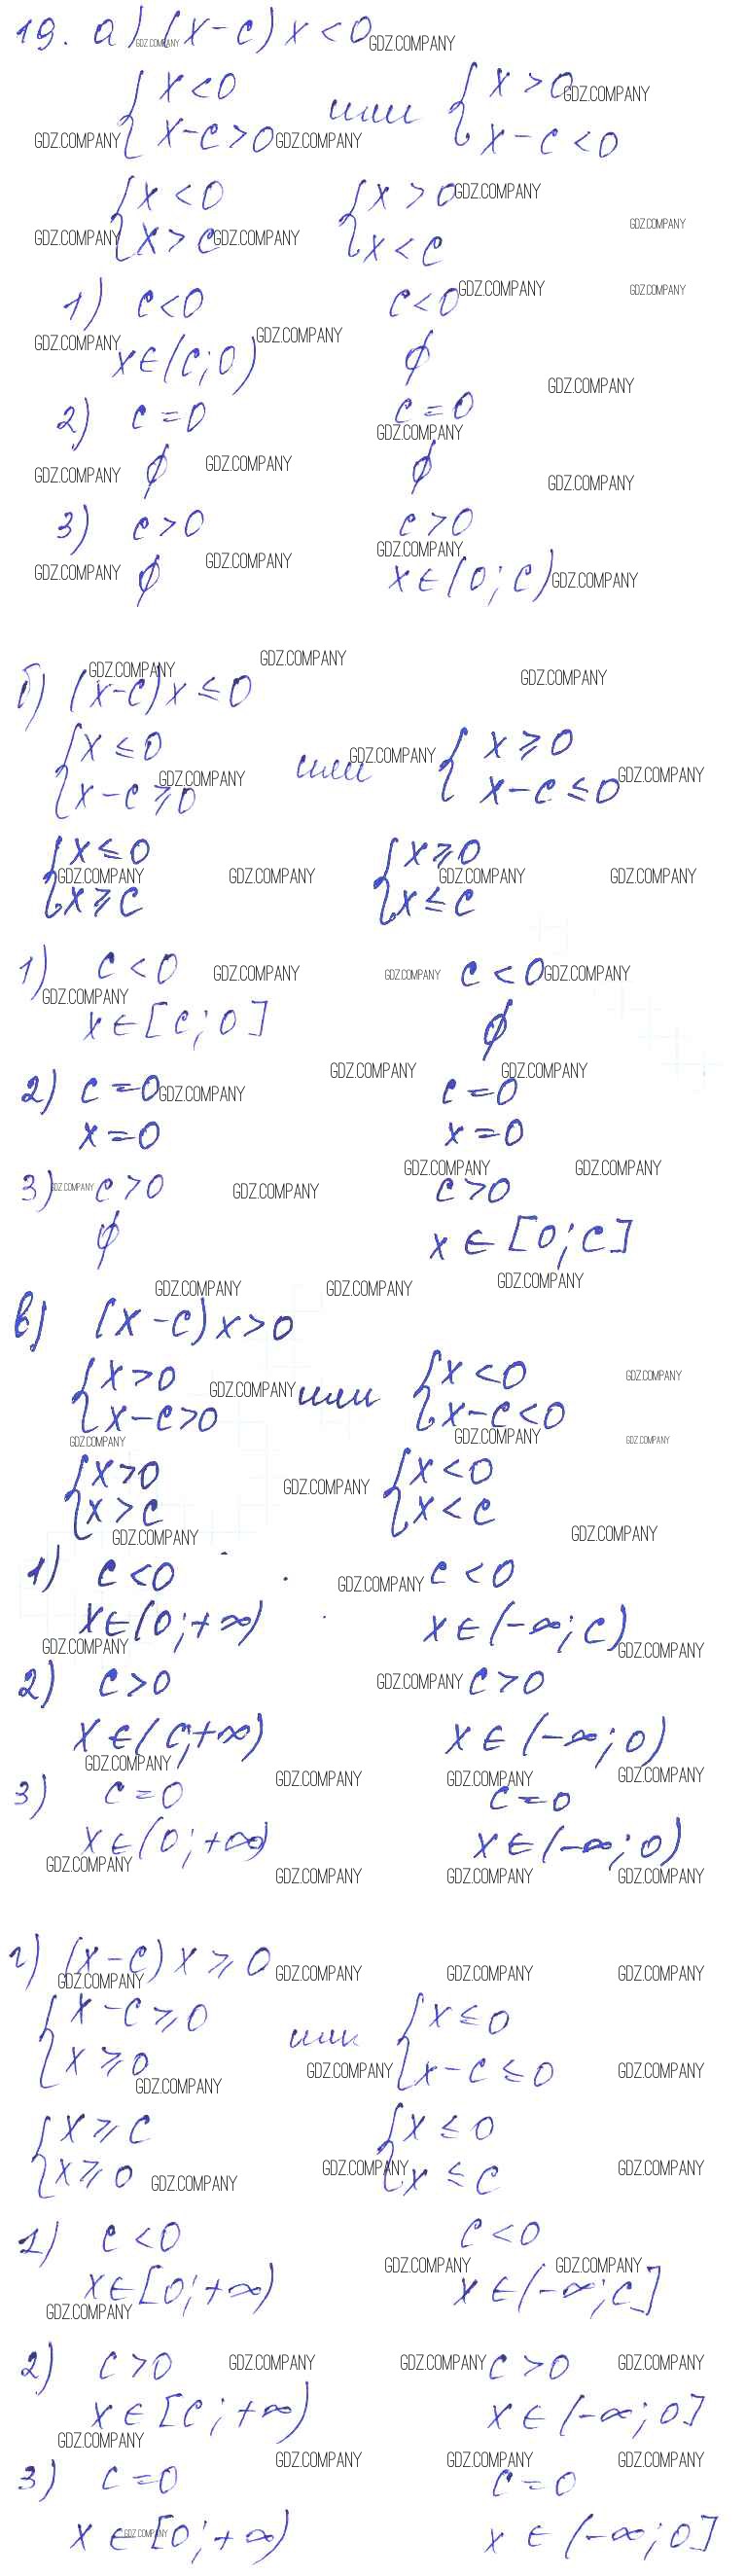 19. а) (x-c)x<0
{x<0 или {x>0
{x-c>0 {x-c<0
{x<0 {x>0
{x>c {x<c
1) c<0 c<0
x∈(c;0) ∅
2) c=0 c=0
∅ ∅
3) c>0 c>0
∅ x∈(0;c)
б) (x-c)x≤0
{x≤0 или {x≥0
{x-c≥0 {x-c≤0
{x≤0 {x≥0
{x≥c {x≤c
1) c<0 c<0
x∈[c;0] ∅
2) c=0 c=0
x=0 x=0
3) c>0 c>0
∅ x∈[0;c]
в) (x-c)x>0
{x>0 или {x<0
{x-c>0 {x-c<0
{x>0 {x<0
{x>c {x<c
1) c<0 c<0
x∈(0;+∞) x∈(-∞;c)
2) c>0 c>0
x∈(c;+∞) x∈(-∞;0)
3) c=0 c=0
x∈(0;+∞) x∈(-∞;0)
г) (x-c)x≥0
{x-c≥0 или {x≤0
{x≥0 {x-c≤0
{x≥c {x≤0
{x≥0 {x≤c
1) c<0 c<0
x∈[0;+∞) x∈(-∞;c]
2) c>0 c>0
x∈[c;+∞) x∈(-∞;0]
3) c=0 c=0
x∈[0;+∞) x∈(-∞;0]
GDZ.COMPANY